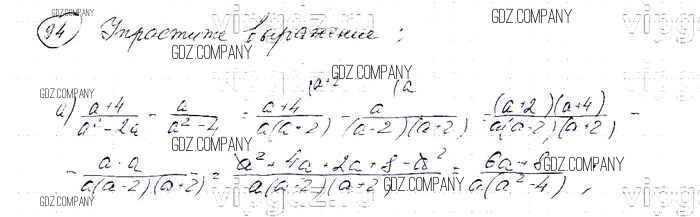 94 Упростите выражение:
GDZ.COMPANY
GDZ.COMPANY
GDZ.COMPANY
(a+2 (a
GDZ.COMPANY
а) \frac{a+4}{a²-2a} - \frac{a}{a²-4} = \frac{a+4}{a(a-2)} - \frac{a}{(a-2)(a+2)} = \frac{(a+2)(a+4)}{a(a-2)(a+2)} -
GDZ.COMPANY
GDZ.COMPANY
- \frac{a·a}{a(a-2)(a+2)} = \frac{a²+4a+2a+8-a²}{a(a-2)(a+2)} = \frac{6a+8}{a(a²-4)};
GDZ.COMPANY
GDZ.COMPANY
GDZ.COMPANY